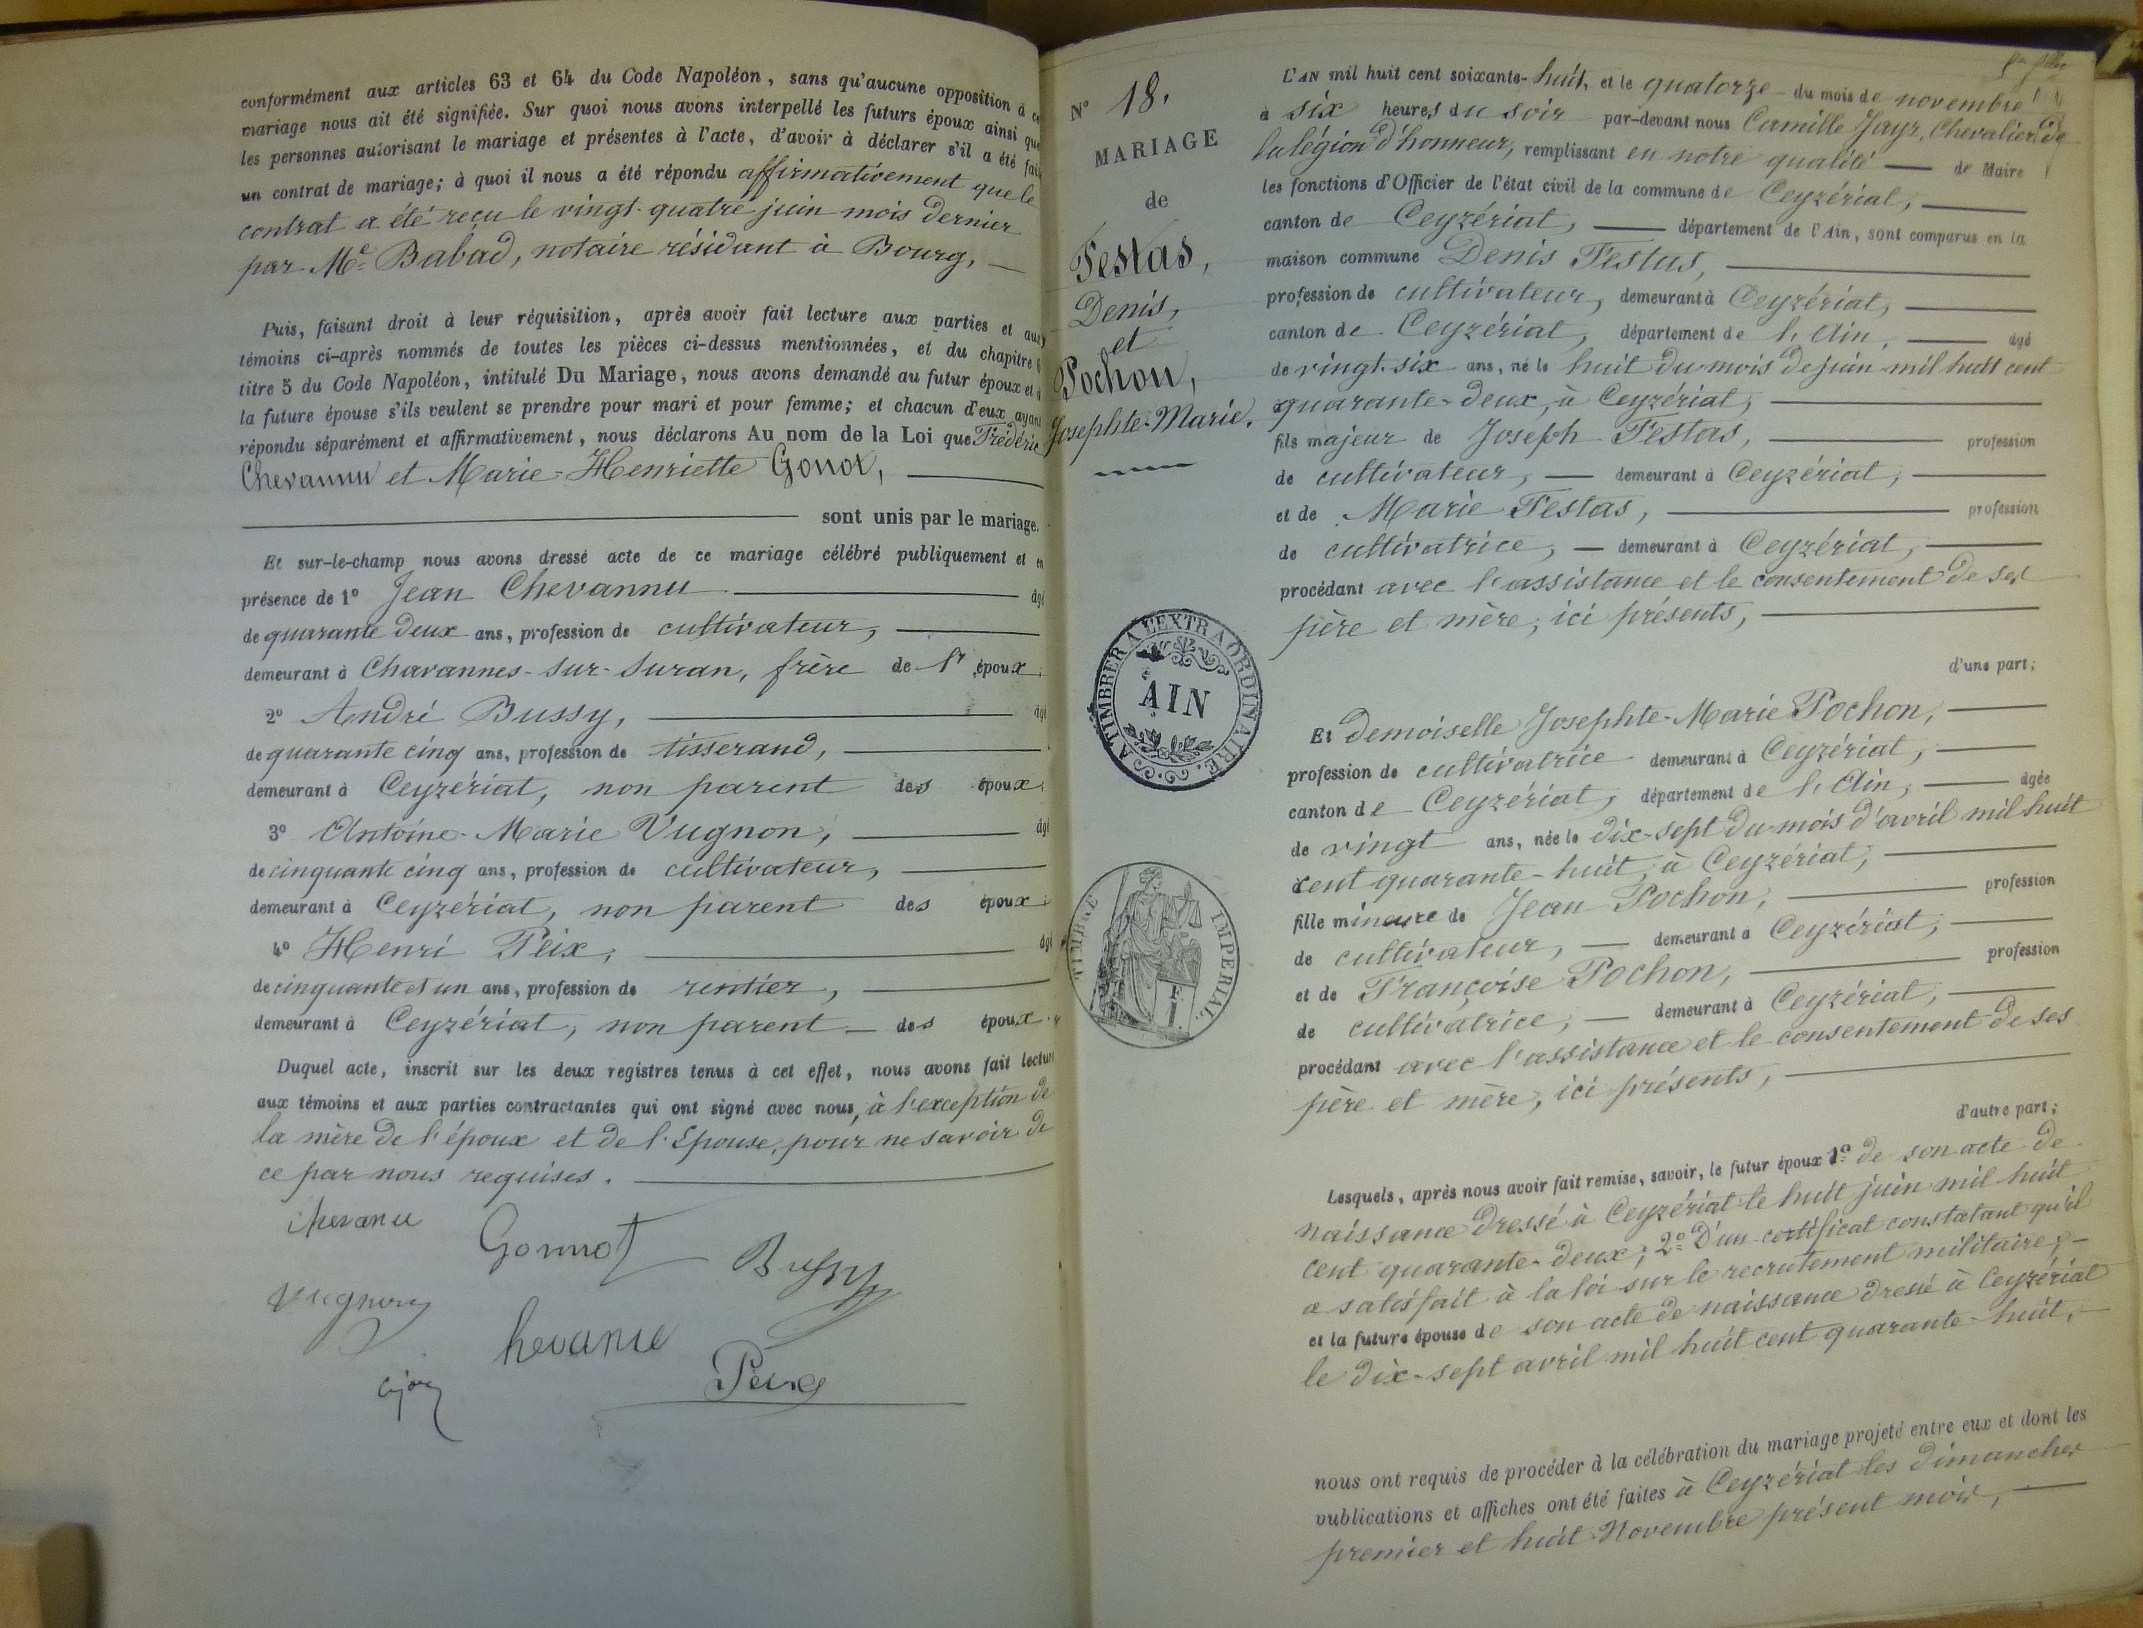 conformément aux articles 63 et 64 du Code Napoléon, sans qu'aucune opposition à ce
mariage nous ait été signifiée. Sur quoi nous avons interpellé les futurs époux ainsi que
les personnes autorisant le mariage et présentes à l'acte, d'avoir à déclarer s'il a été fait
un contrat de mariage; à quoi il nous a été répondu affirmativement que le
contrat a été reçu le vingt-quatre juin mois dernier
par Me Babad, notaire résidant à Bourg,
Puis, faisant droit à leur réquisition, après avoir fait lecture aux parties et aux
témoins ci-après nommés de toutes les pièces ci-dessus mentionnées, et du chapitre 6
titre 5 du Code Napoléon, intitulé Du Mariage, nous avons demandé au futur époux et à
la future épouse s'ils veulent se prendre pour mari et pour femme; et chacun d'eux ayant
répondu séparément et affirmativement, nous déclarons Au nom de la Loi que Frédéric
Chevannu et Marie-Henriette Gonot,
sont unis par le mariage.
Et sur-le-champ nous avons dressé acte de ce mariage célébré publiquement et en
présence de 1° Jean Chevannu âgé
de quarante deux ans, profession de cultivateur,
demeurant à Chavannes-sur-Suran, frère de l' époux
2° André Bussy, âgé
de quarante cinq ans, profession de tisserand,
demeurant à Ceyzériat, non parent des époux
3° Antoine-Marie Vugnon, âgé
de cinquante cinq ans, profession de cultivateur,
demeurant à Ceyzériat, non parent des époux
4° Henri Peix, âgé
de cinquante et un ans, profession de rentier,
demeurant à Ceyzériat, non parent des époux
Duquel acte, inscrit sur les deux registres tenus à cet effet, nous avons fait lecture
aux témoins et aux parties contractantes qui ont signé avec nous, à l'exception de
la mère de l'époux et de l'Epouse, pour ne savoir de
ce par nous requises.
Gonnot
Bussy
Vugnon
Peix
N° 18.
MARIAGE
de
Festas,
Denis,
et
Pochon,
Josephte-Marie.
A TIMBRER A L'EXTRAORDINAIRE.
AIN
TIMBRE IMPERIAL.
L'AN mil huit cent soixante-huit, et le quatorze du mois de novembre
à six heures du soir par-devant nous Camille Jayr, Chevalier de
la légion d'honneur, remplissant en notre qualité de Maire
les fonctions d'Officier de l'état civil de la commune de Ceyzériat,
canton de Ceyzériat, département de l'Ain, sont comparus en la
maison commune Denis Festas,
profession de cultivateur, demeurant à Ceyzériat,
canton de Ceyzériat, département de l'Ain, âgé
de vingt-six ans, né le huit du mois de juin mil huit cent
quarante-deux, à Ceyzériat,
fils majeur de Joseph Festas, profession
de cultivateur, demeurant à Ceyzériat,
et de Marie Festas, profession
de cultivatrice, demeurant à Ceyzériat,
procédant avec l'assistance et le consentement de ses
père et mère, ici présents,
d'une part;
Et demoiselle Josephte-Marie Pochon,
profession de cultivatrice demeurant à Ceyzériat,
canton de Ceyzériat, département de l'Ain, âgée
de vingt ans, née le dix-sept du mois d'avril mil huit
cent quarante-huit, à Ceyzériat,
fille mineure de Jean Pochon, profession
de cultivateur, demeurant à Ceyzériat,
et de Françoise Pochon, profession
de cultivatrice, demeurant à Ceyzériat,
procédant avec l'assistance et le consentement de ses
père et mère, ici présents,
d'autre part;
Lesquels, après nous avoir fait remise, savoir, le futur époux 1° de son acte de
naissance dressé à Ceyzériat le huit juin mil huit
cent quarante-deux; 2° D'un certificat constatant qu'il
a satisfait à la loi sur le recrutement militaire;
et la future épouse de son acte de naissance dressé à Ceyzériat
le dix-sept avril mil huit cent quarante-huit,
nous ont requis de procéder à la célébration du mariage projeté entre eux et dont les
publications et affiches ont été faites à Ceyzériat les dimanches
premier et huit Novembre présent mois,